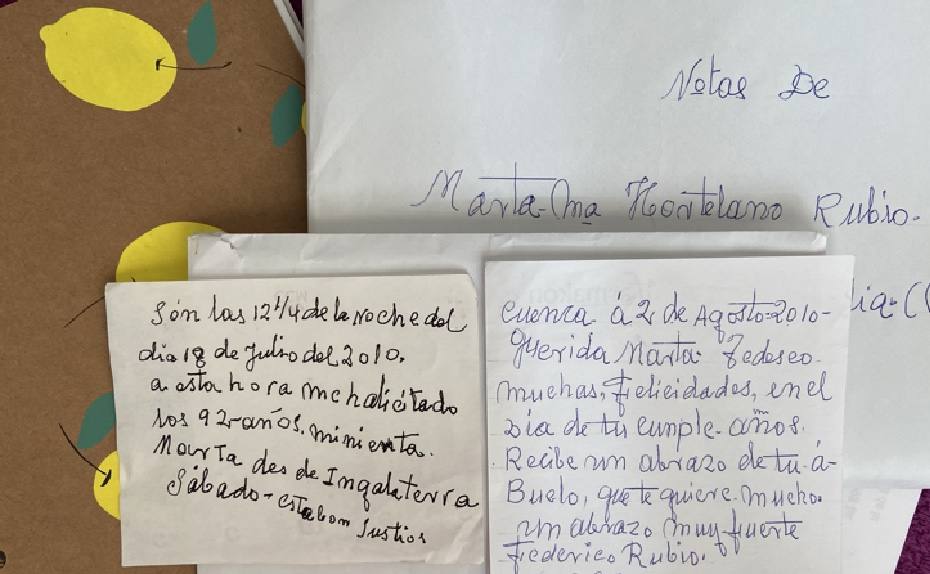 Notas De
Marta-Mª Hortelano Rubio.
Són las 12 1/4 de la noche del
dia 18 de Julio del 2010.
a esta hora me ha
los 92-años. mi nienta.
Marta des de Ingalaterra
Sábado - estabam Justios
Cuenca á 2 de Agosto-2010-
querida Marta
muchas, felicidades, en el
Dia de tu cumple. años.
Recibe un abrazo de tu á-
Buelo, que te quiere. mucho.
un abrazo muy-fuerte
Federico Rubio.